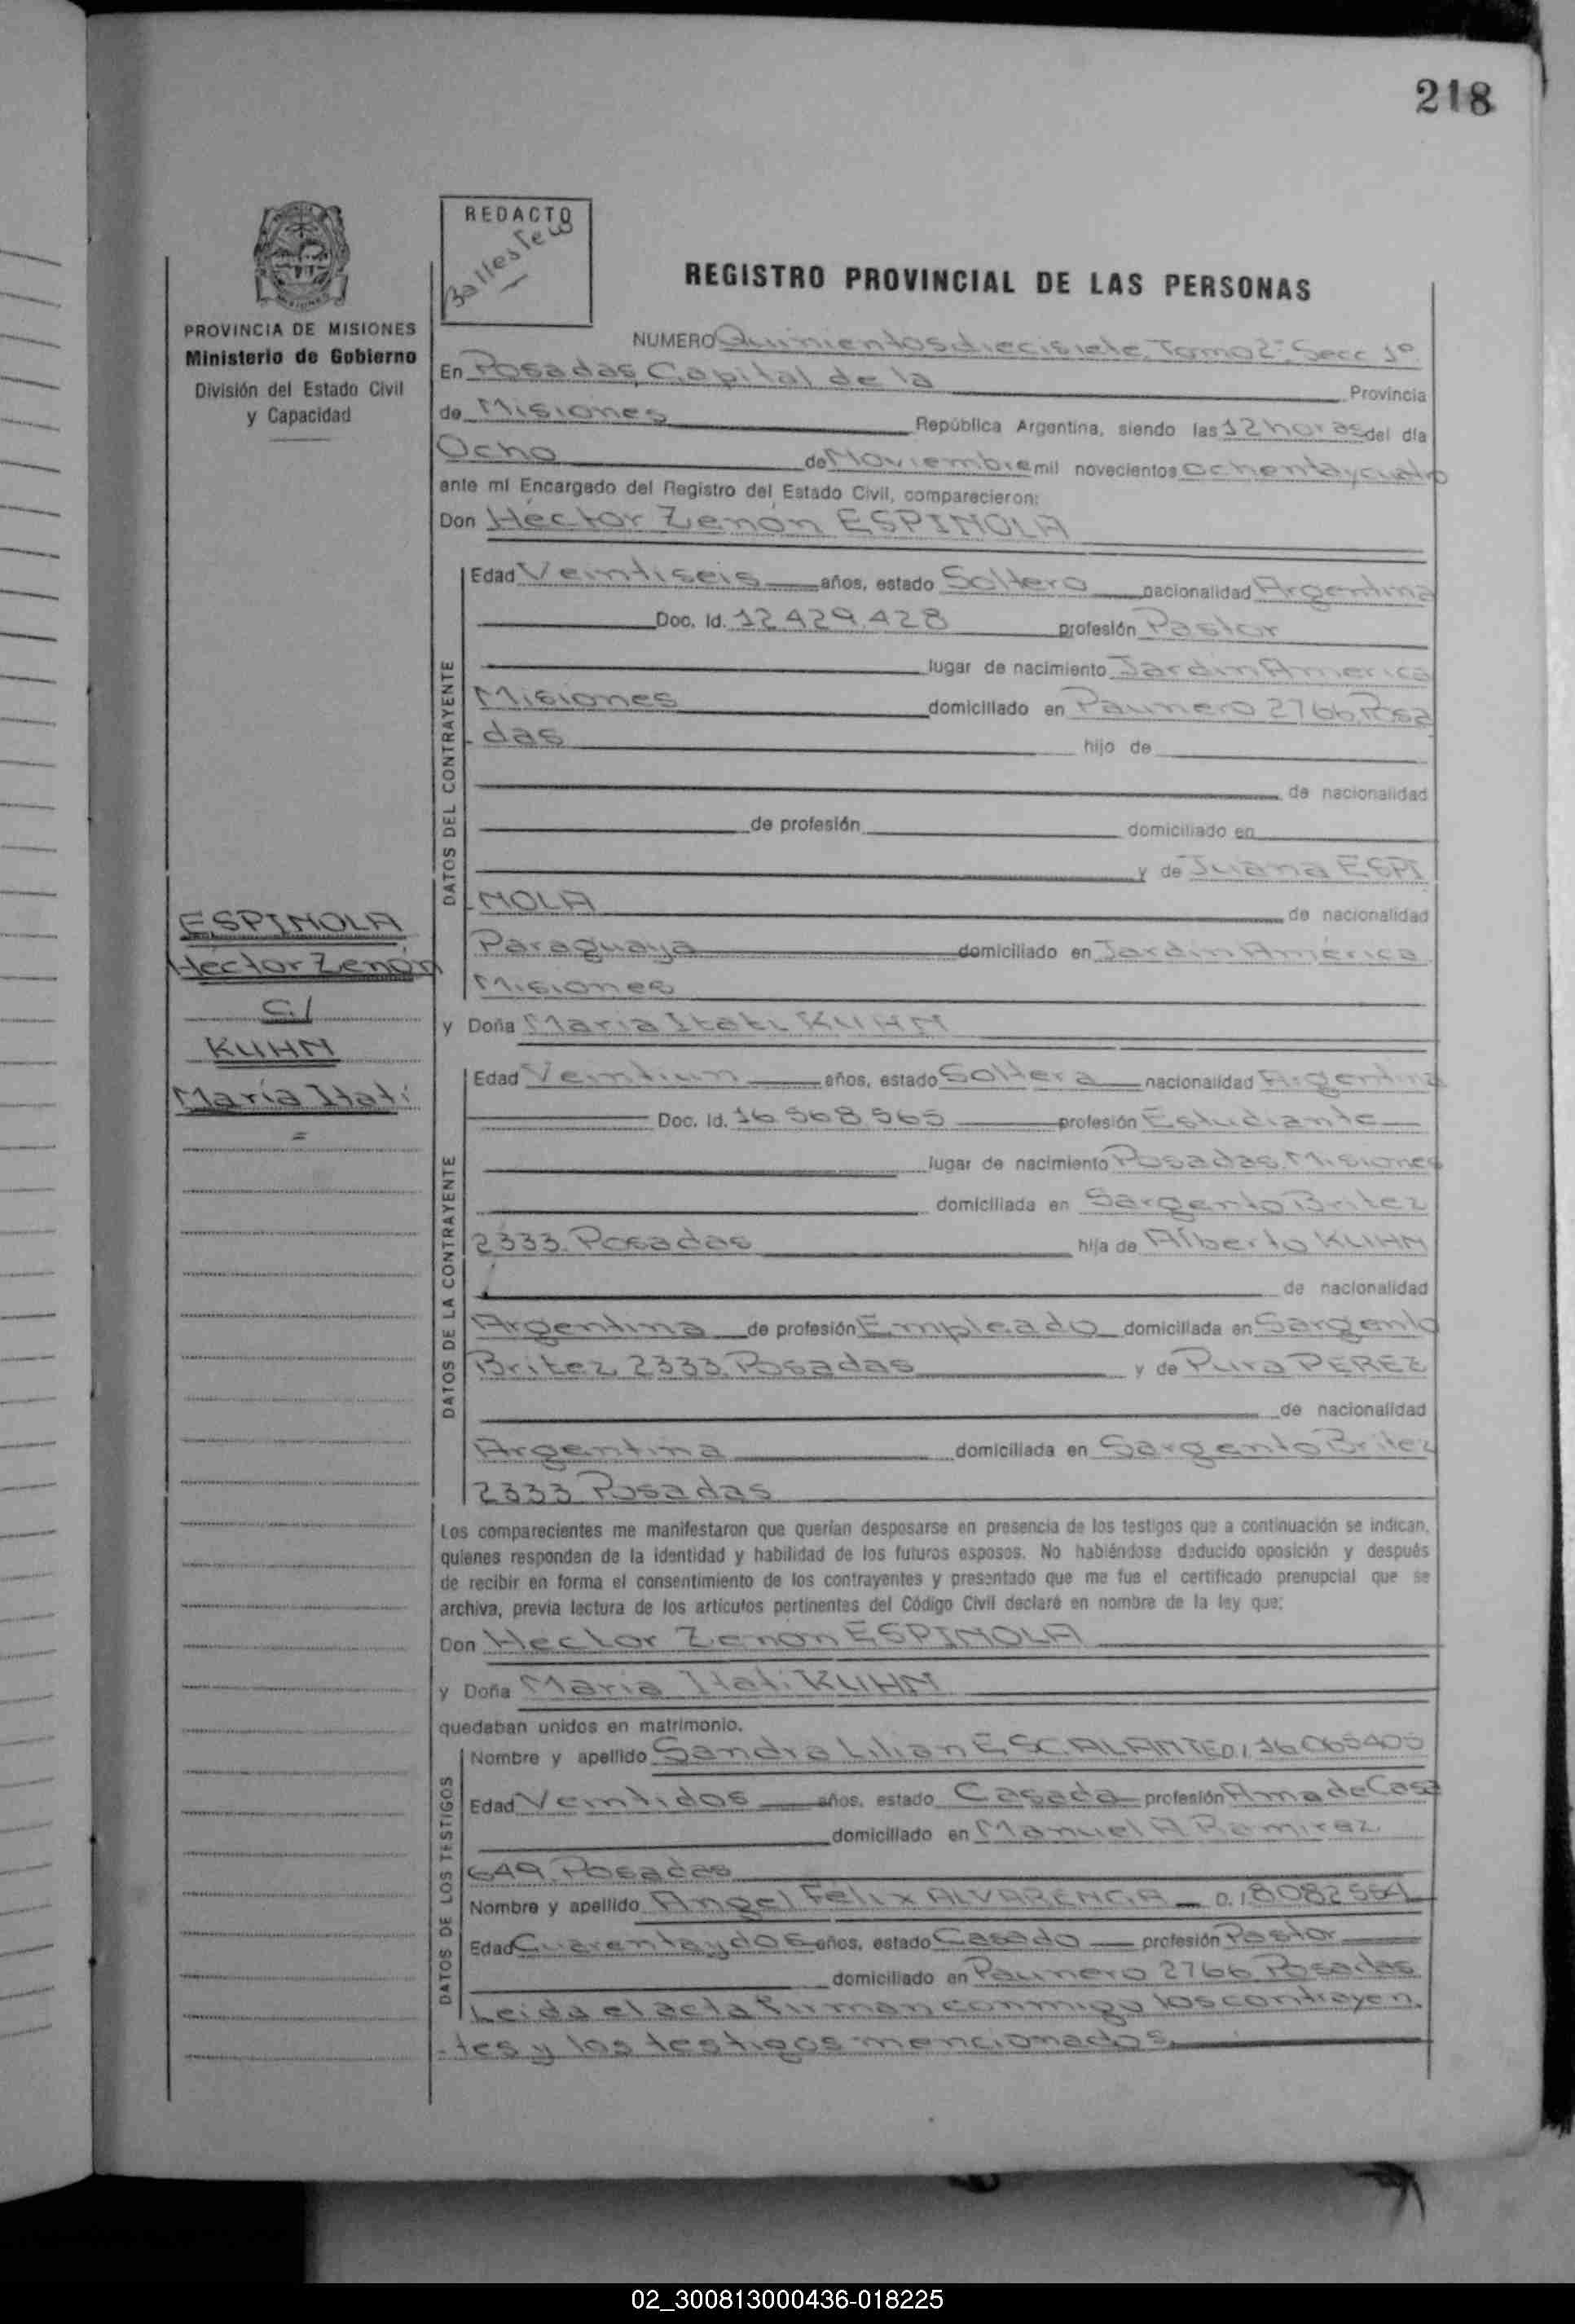 218
REDACTO
Ballestero
REGISTRO PROVINCIAL DE LAS PERSONAS
PROVINCIA DE MISIONES
Ministerio de Gobierno
División del Estado Civil
y Capacidad
NUMERO Quinientos diecisiete. Tomo 2º. Secc 1º.
En Posadas, Capital de la Provincia
de Misiones República Argentina, siendo las 12 horas del día
Ocho de Noviembre mil novecientos ochenta y cuatro
ante mí Encargado del Registro del Estado Civil, comparecieron:
Don Héctor Zenón ESPINOLA
DATOS DEL CONTRAYENTE
Edad Veintiseis años, estado Soltero nacionalidad Argentina
Doc. Id. 12.429.428 profesión Pastor
lugar de nacimiento Jardin America
Misiones domiciliado en Paunero 2766, Posa
das hijo de
de nacionalidad
de profesión domiciliado en
y de Juana ESPI
NOLA de nacionalidad
Paraguaya domiciliado en Jardin América
Misiones
ESPINOLA
Héctor Zenón
C/
KUHN
María Itatí
=
y Doña María Itatí KUHN
DATOS DE LA CONTRAYENTE
Edad Veintiun años, estado Soltera nacionalidad Argentina
Doc. Id. 16.568.565 profesión Estudiante
lugar de nacimiento Posadas, Misiones
domiciliada en Sargento Britez
2333. Posadas hija de Alberto KUHN
de nacionalidad
Argentina de profesión Empleado domiciliada en Sargento
Britez 2333. Posadas y de Pura PEREZ
de nacionalidad
Argentina domiciliada en Sargento Britez
2333 Posadas
Los comparecientes me manifestaron que querían desposarse en presencia de los testigos que a continuación se indican,
quienes responden de la identidad y habilidad de los futuros esposos. No habiéndose deducido oposición y después
de recibir en forma el consentimiento de los contrayentes y presentado que me fue el certificado prenupcial que se
archiva, previa lectura de los artículos pertinentes del Código Civil declaré en nombre de la ley que:
Don Hector Zenón ESPINOLA
y Doña María Itatí KUHN
quedaban unidos en matrimonio.
DATOS DE LOS TESTIGOS
Nombre y apellido Sandra Lilian ESCALANTE D.I 16065405
Edad Veintidos años, estado Casada profesión Ama de Casa
domiciliado en Manuel A Ramirez
649. Posadas
Nombre y apellido Angel Félix ALVARENGA D.I 8082554
Edad Cuarenta y dos años, estado Casado profesión Pastor
domiciliado en Paunero 2766 Posadas
Leida el acta firman conmigo los contrayen
tes y los testigos mencionados.
02_300813000436-018225